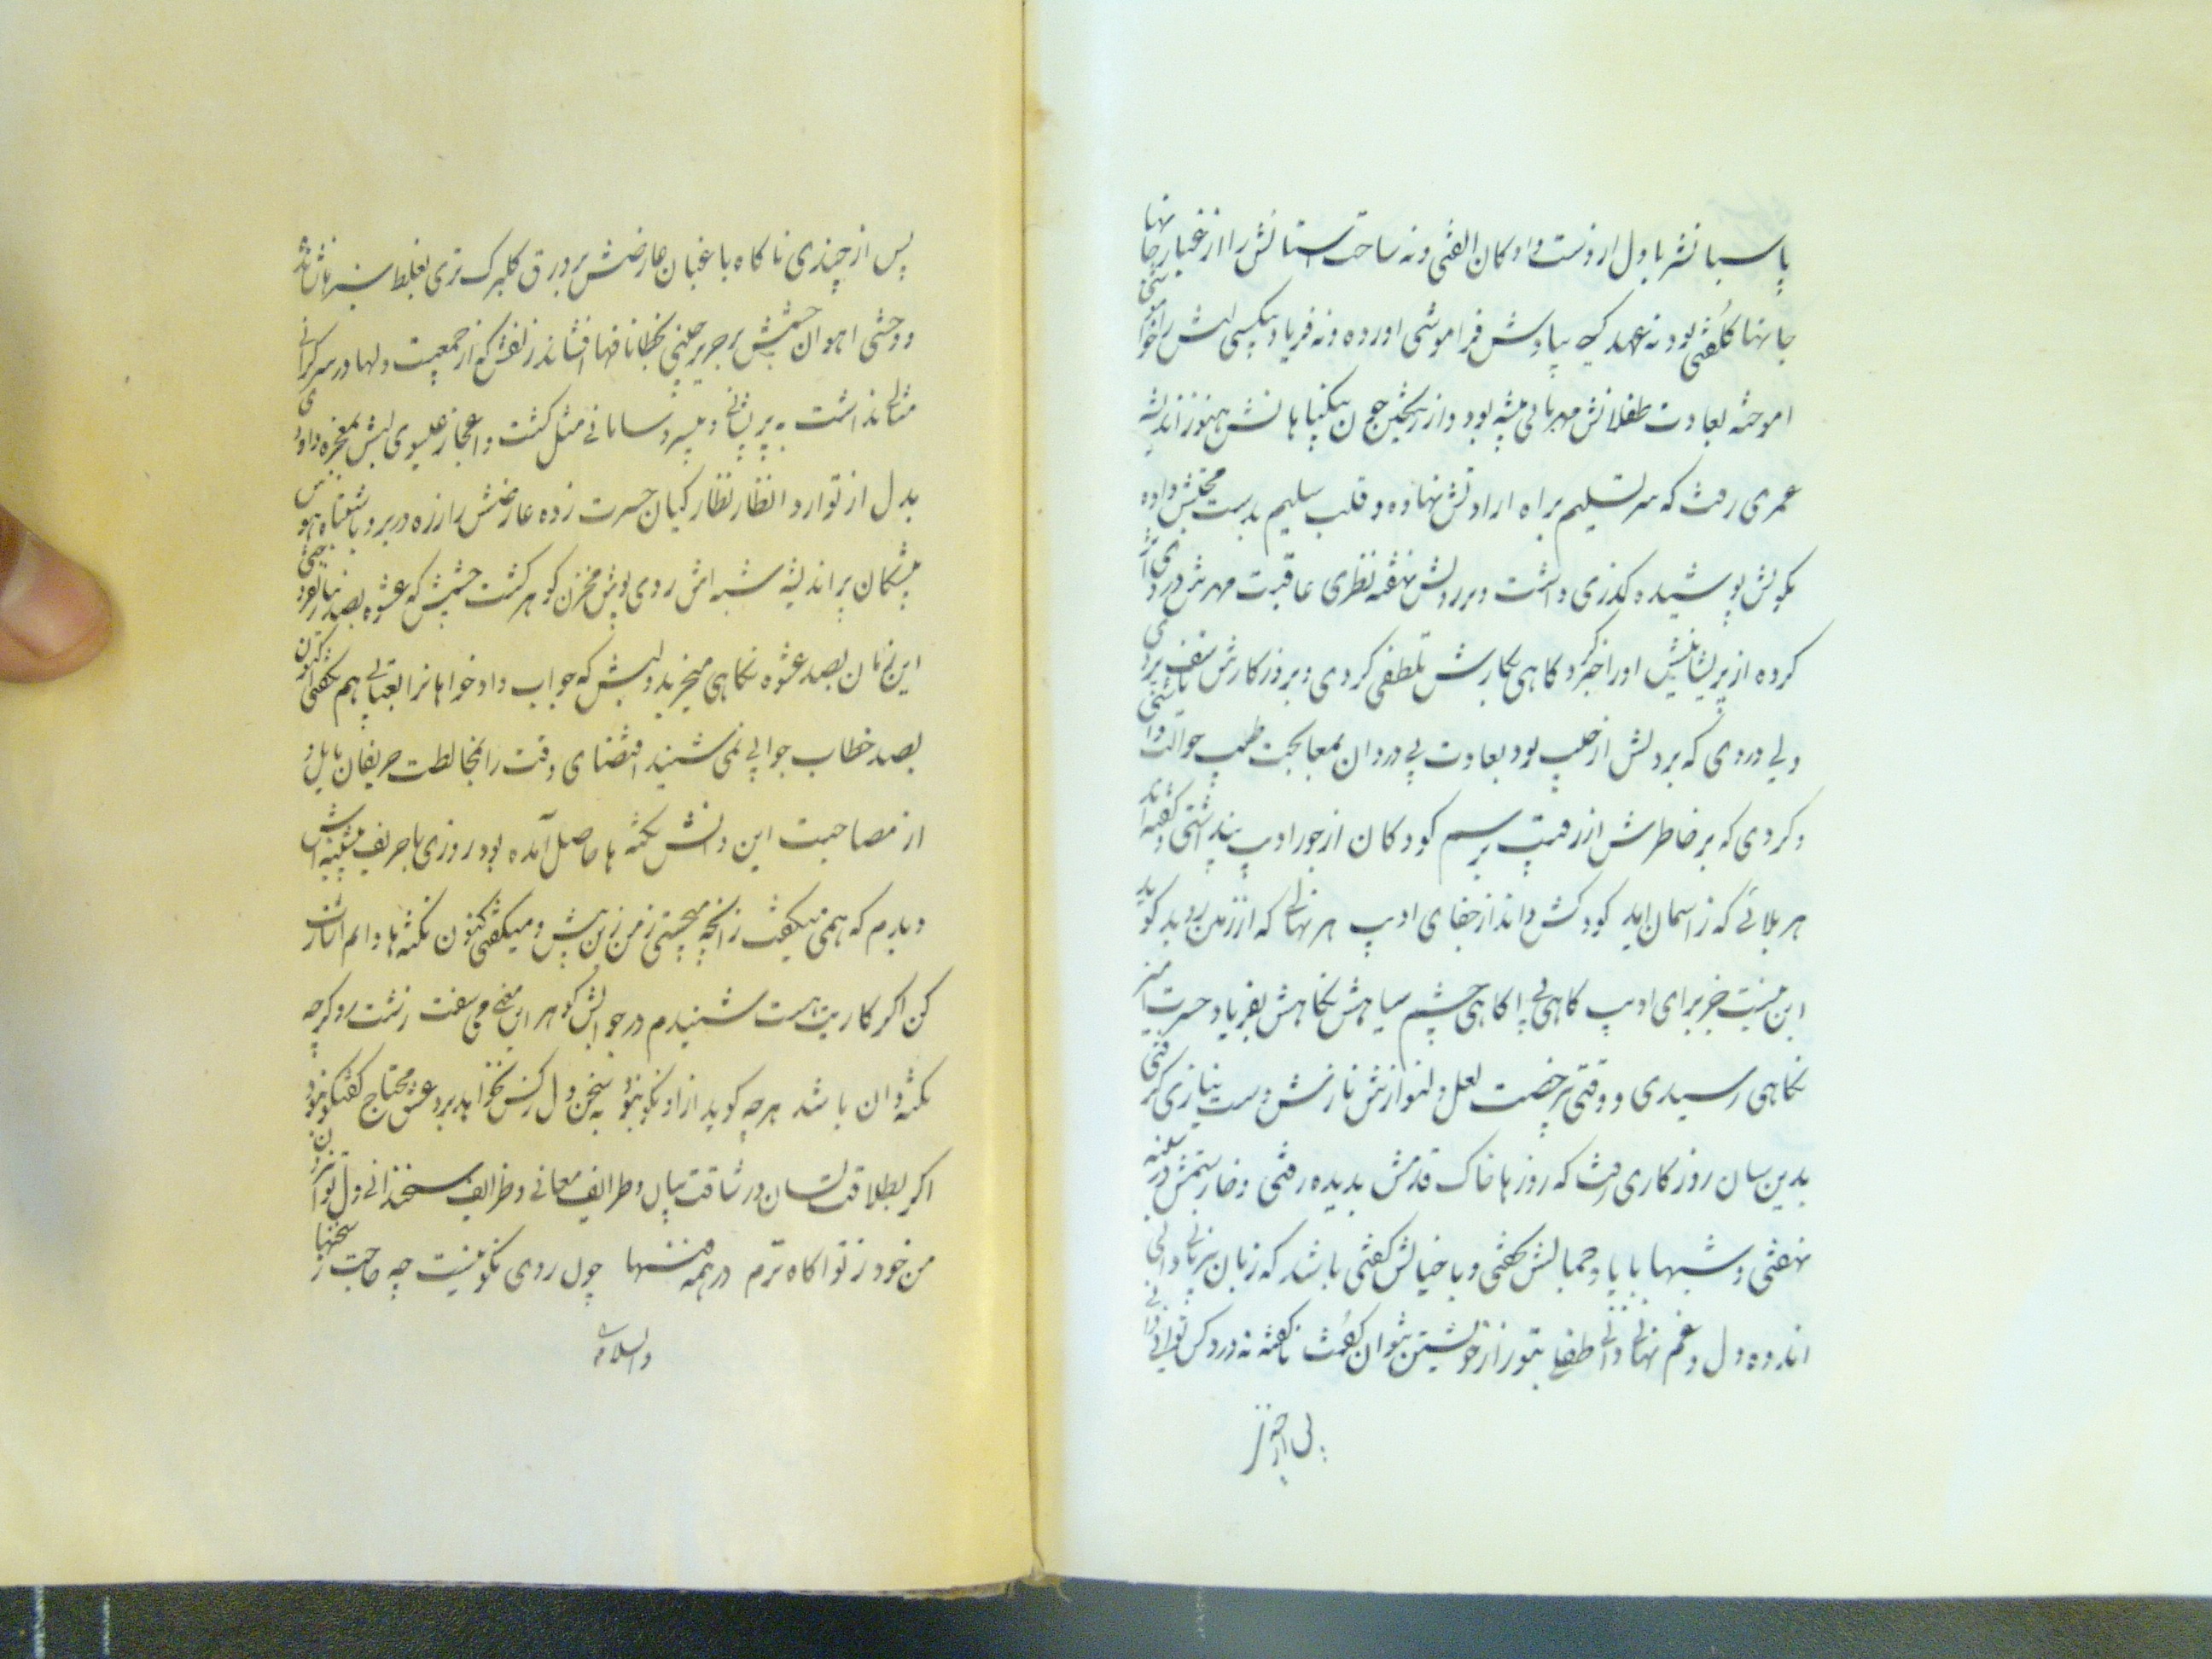 پاسبانش با دل از دست دادگان الفتی و نه ساحت آستانش را از غبار جانها
جانها کلفتی بود نه عهد کسی بیادش فراموشی آورده و نه فریاد بیکسی لبش را خاموشی
آموخته بعادت طفلانش مهربانی پیشه بود و از ریختن خون بیگناهانش هنوز اندیشه
عمری رفت که سر تسلیم براه ارادتش نهاده و قلب سلیم بدست محبتش داده
بکویش پوشیده گذری داشت و بر رویش نهفته نظری عاقبت مهرش در وی اثر
کرده از پریشانیش اورا خبر کرد گاهی بکارش تلطفی کردی و بروزگارش تاسف بردی
ولی دردی که بر دلش از خلیب بود بعادت بی دردان بمعالجت طبیب حوالت داشتی
و گردی که بر خاطرش از رقیب برسم کودکان از جور ادیب پنداشتی و گفته اند
هر بلائی که ز آسمان آید کودکش داند از جفای ادیب هر نهالی که از زمین روید گوید
این نیست جز برای ادیب گاهی بی آگاهی چشم سیاهش نگاهش بفریاد حسرت آمیز
نگاهی رسیدی و وقتی برخصت لعل دلنوازش نازش دست نیازی گرفتی
بدین سان روزگاری رفت که روزها خاک قدمش بدیده رفتی و خار ستمش در سینه
نهفتی و شبها با یاد جمالش خفتی و با خیالش گفتی باشد که زبان بیزبانی دانی
اندوه دل و غم نهانی دانی طفلی بتو راز خویشتن نتوان گفت ناگفته نه درد کس توانی دانی
پس از چندی
پس از چندی ناگاه باغبان عارضش بر ورق گلبرگ تری بغلط سبزه نشاند
و وحشی آهوان چشمش بر حریر چینی بخطا نافها افشاند زلفش که از جمعیت دلها در سر گرانی
مثالی نداشت به پریشانی و بیسر و سامانی مثل گشت و اعجاز عیسوی لبش بمعجزه داودی
بدل از توارد انظار نظارگیان حسرت زده عارضش را زره در بر و باشتباه هوس
پیشگان بر اندیشه شبه اش روی پوش مخزن گوهر گشت چشمش که عشوه بصد نیاز نفروختی
این زمان بصد عشوه نگاهی میخرید و لبش که جواب دادخواهان را بعتابی هم نگفتی اکنون
بصد خطاب جوابی نمی شنید اقتضای وقت را بمخالطت حریفان مایل و
از مصاحبت این دانش نکته ها حاصل آمده بود روزی با حریف پیشینه اش
دیدم که همی میگفت ز آنچه میجستی ز من زین پیش و میگفتی کنون نکته ها دانم از آن
کن اگر کاریت هست شنیدم در جوابش گوهر این معنی می سفت زشت رو گرچه
نکته دان باشد هرچه گوید از او نکو نبود به سخن دل ز کس نخواهد برد عشق محتاج گفتگو نبود
اگر بطلاقت لسان و رشاقت بیان و طرایف معانی و ظرایف سخندانی دل توان بردن
من خود ز تو آگاه ترم در همه فنها چون روی نکو نیست چه حاجت ز سخنها
والسلام